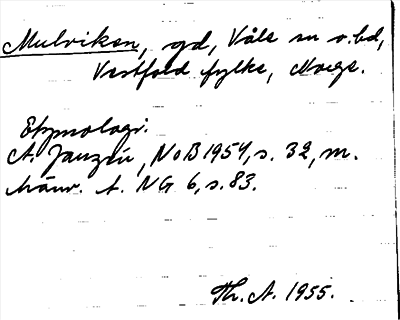 Mulviken, gd, Våle sn o. bd,
Vestfold fylke, Norge.
Etymologi.
A. Janzén, NoB 1954, s. 32, m.
hänv. t. NG 6, s. 83.
Th. A. 1955.